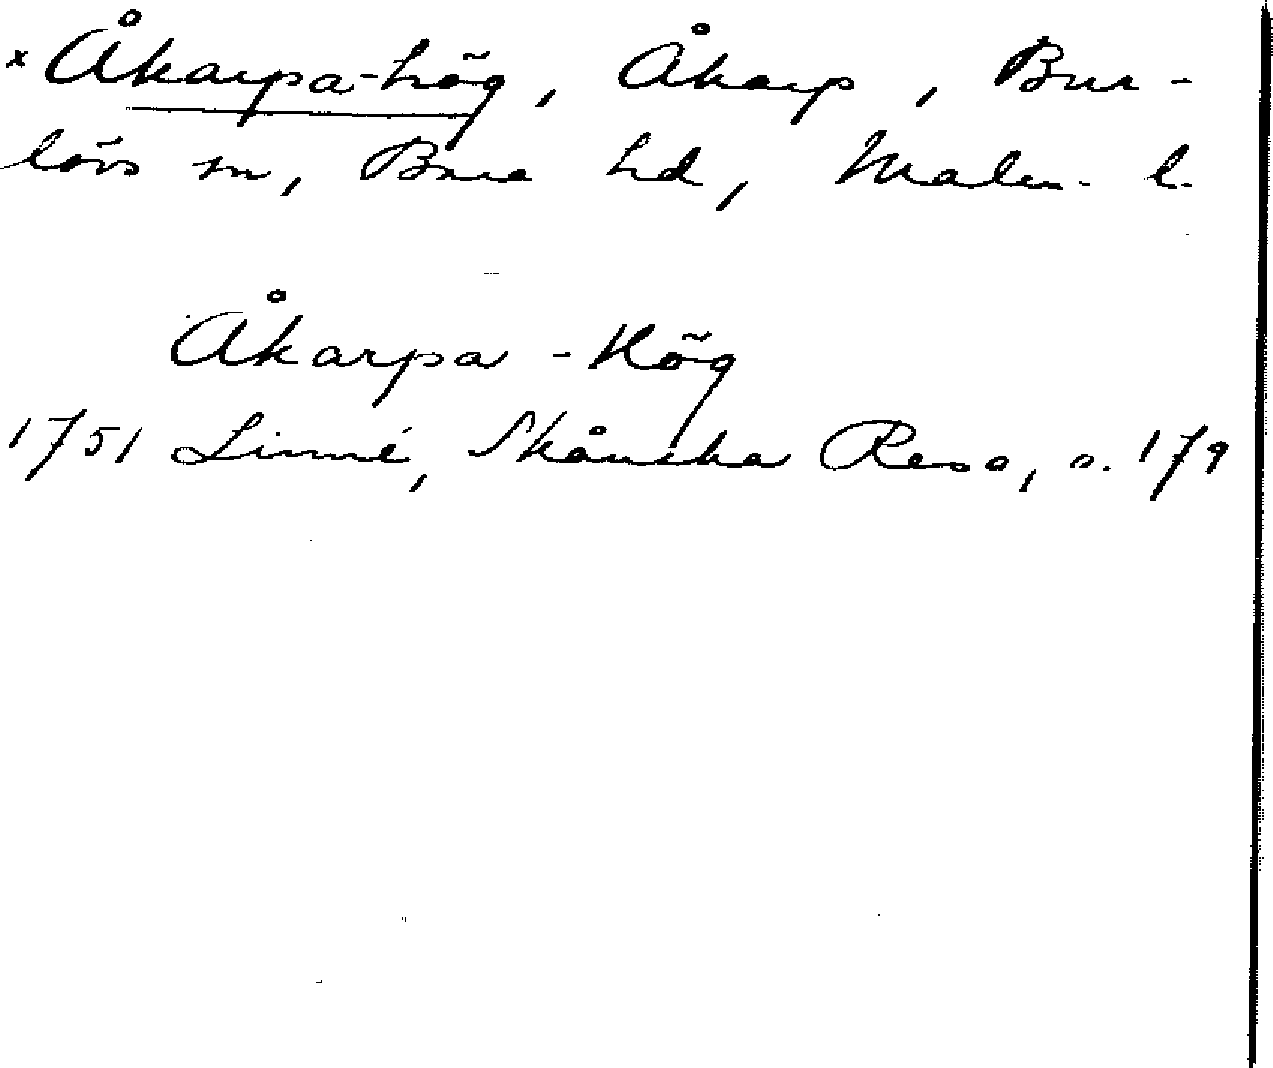 ˣ Åkarpa-hög, Åkarp, Bur-
lövs sn, Bara hd, Malm. l.
Åkarpa-Hög
1751 Linné, Skånska Resa, s. 179